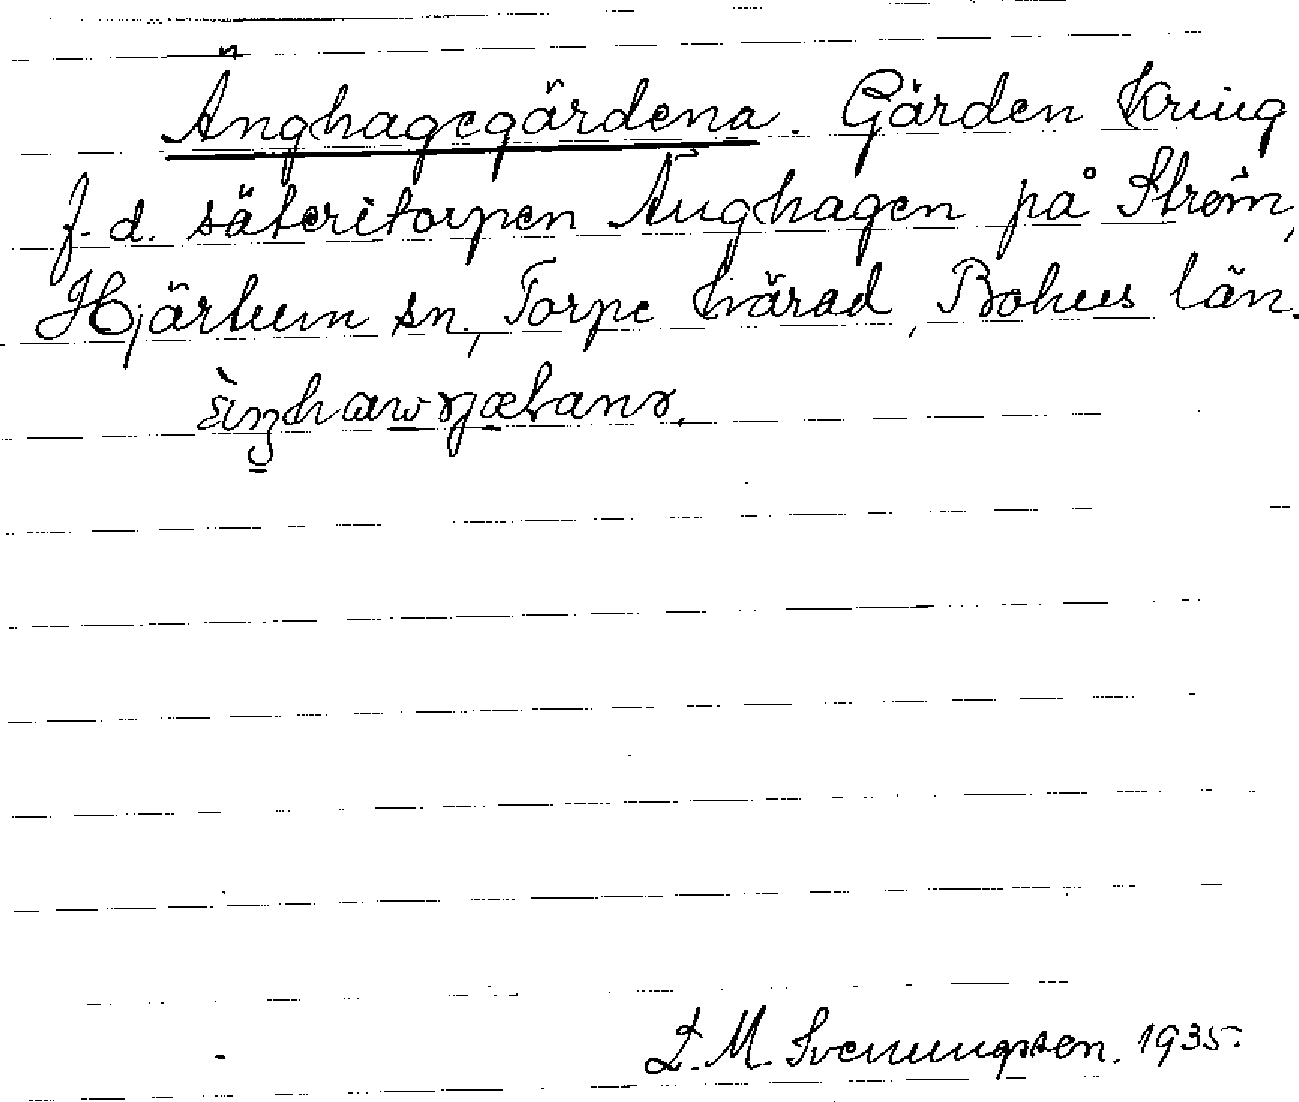 Änghagegärdena. Gärden kring
f. d. säteritorpen Änghagen på Ström,
Hjärtum sn., Torpe härad, Bohus län.
L. M. Svenungsson. 1935.